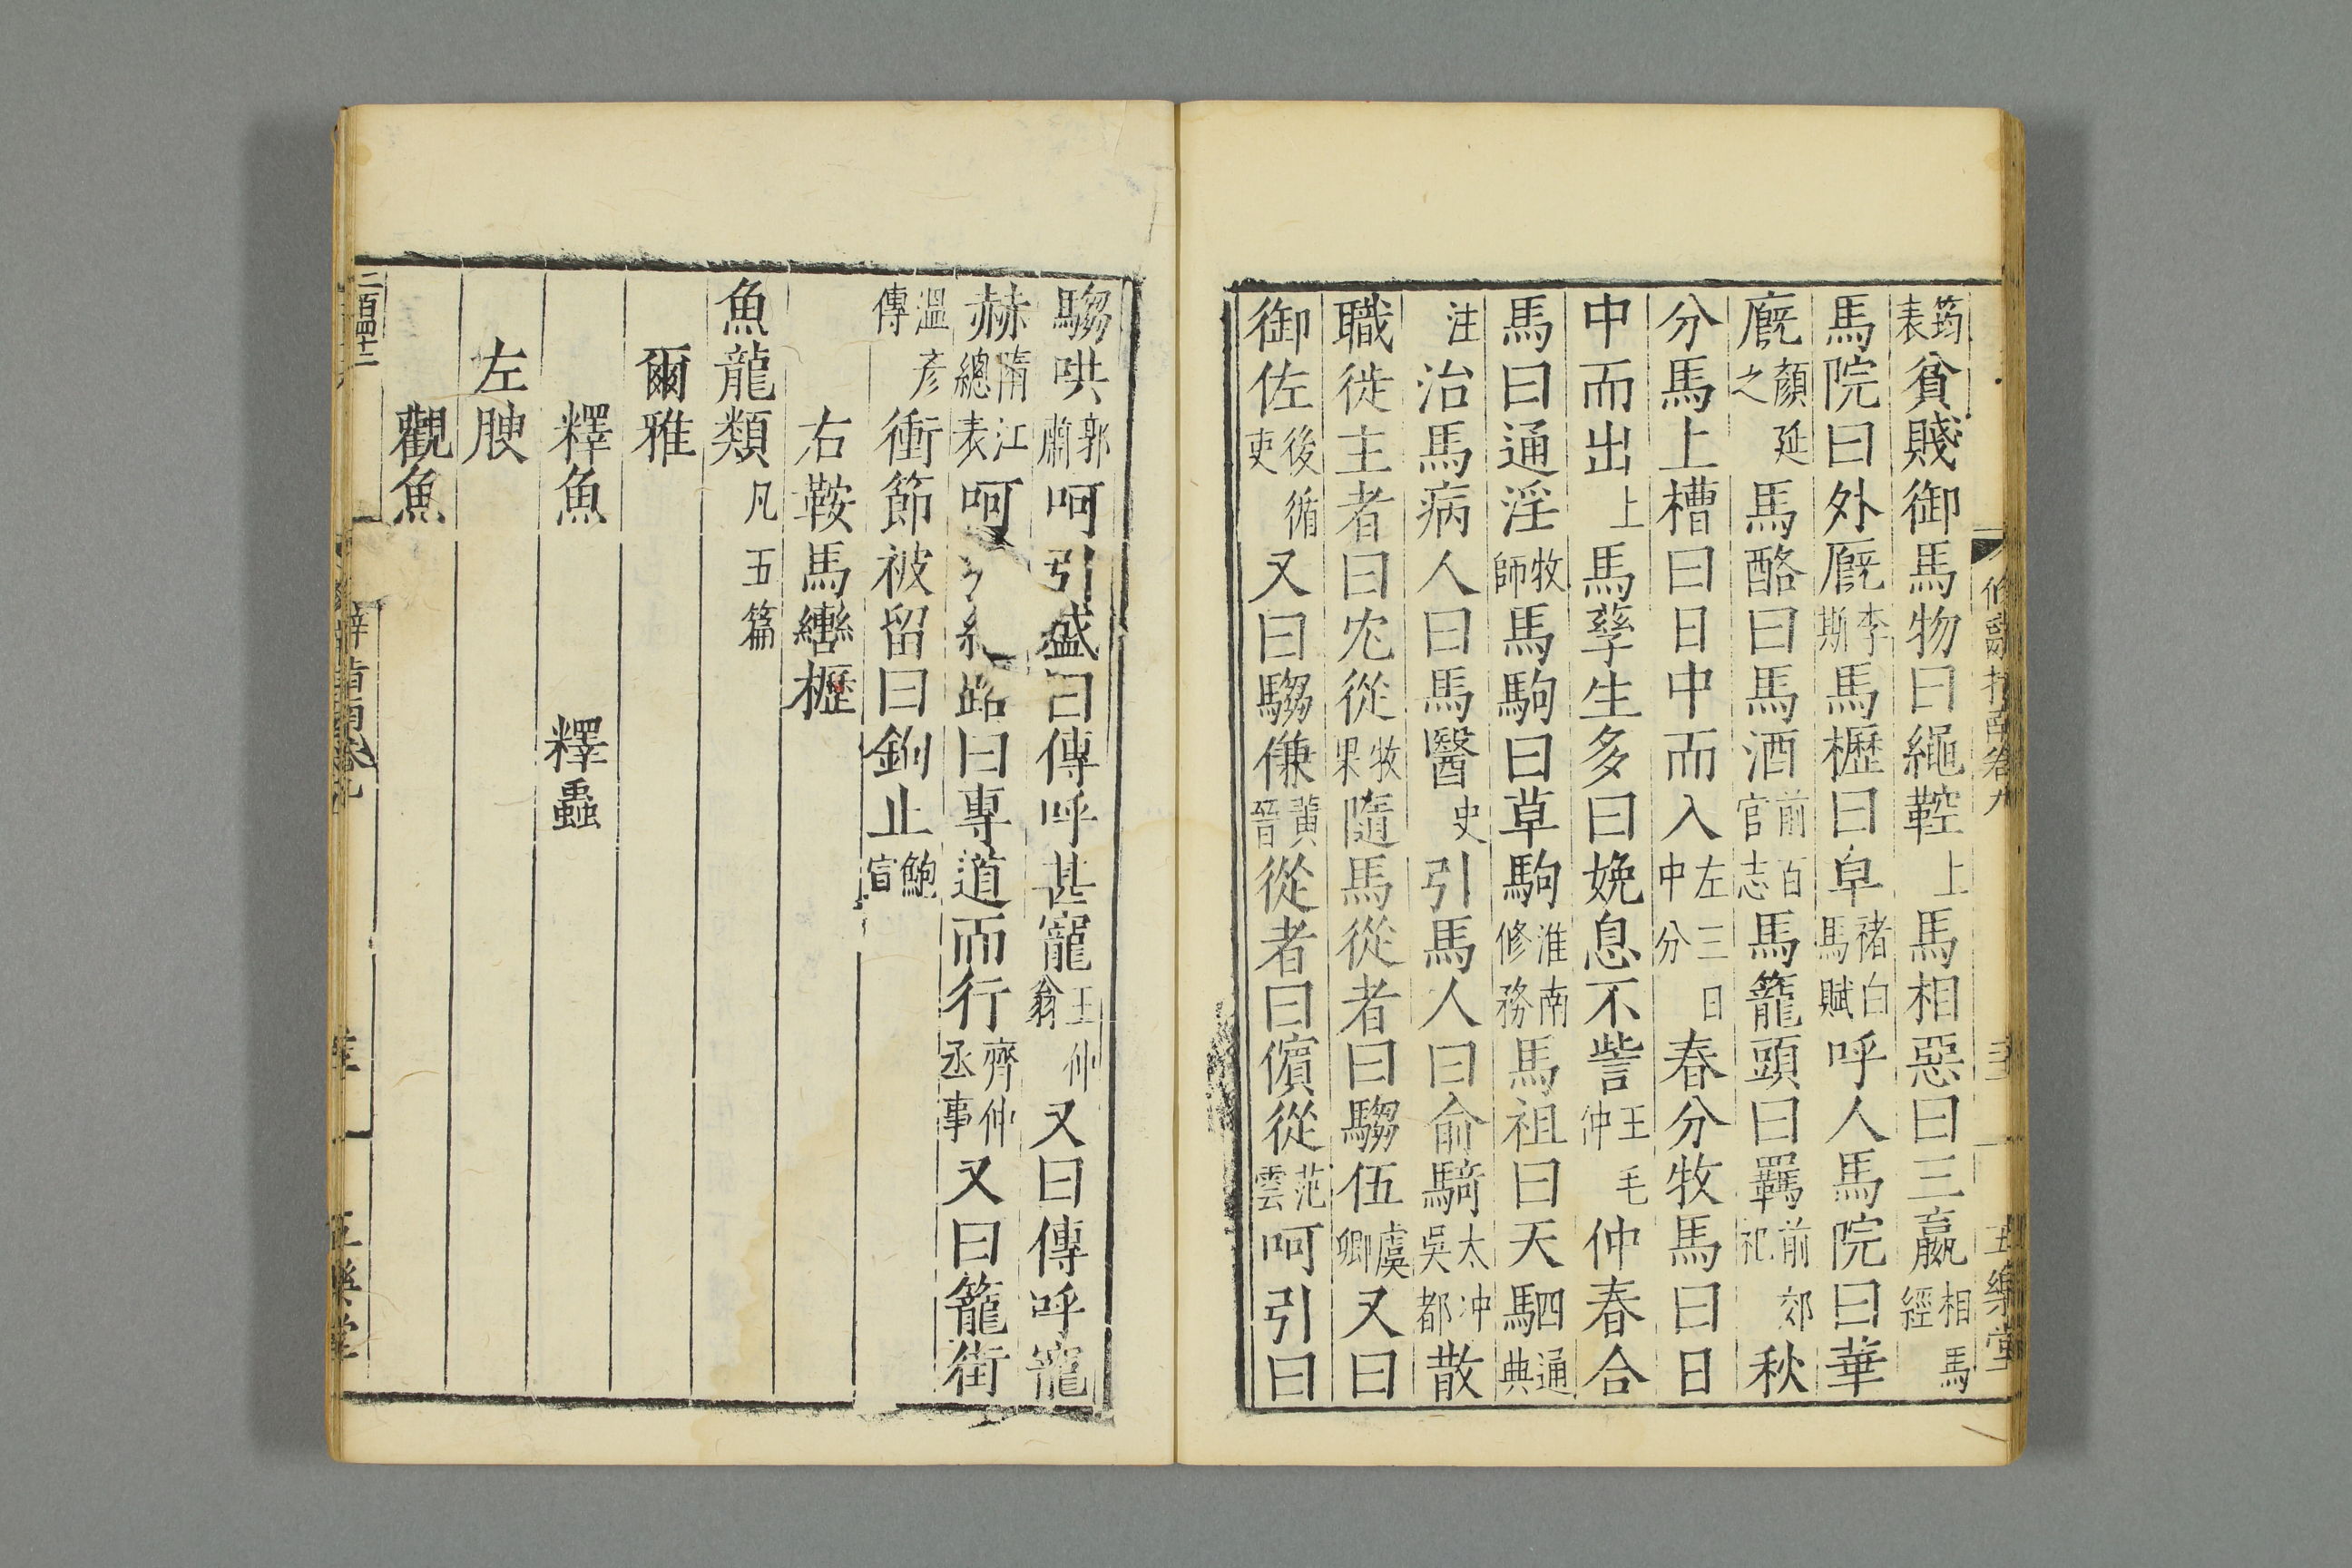 修辭指南卷九
五樂堂
筠表貧賤御馬物曰繩鞚上馬相惡曰三羸相馬經
馬院曰外廐李斯馬櫪曰皁褚白馬賦呼人馬院曰華
廐顏延之馬酪曰馬酒前百官志馬籠頭曰羈前郊祀秋
分馬上槽曰日中而入左三中分日春分牧馬曰日
中而出上馬孳生多曰娩息不訾王毛仲仲春合
馬曰通淫牧師馬駒曰草駒淮南修務馬祖曰天駟四通典
注治馬病人曰馬醫史引馬人曰俞騎太冲吳都散
職徙主者曰宂從牧果隨馬從者曰騶伍虞卿又曰
御佐後循吏又曰騶傔黃晉從者曰儐從范雲呵引曰
騶哄郭肅呵引盛曰傳呼甚寵王仲翁又曰傳呼寵
赫隋江總表呵路曰專道而行齊仲丞事又曰籠街
溫彥傳衝節被留曰鉤止鮑宣
右鞍馬轡櫪
魚龍類凡五篇
爾雅
釋魚 釋蟲
左腴
觀魚
二百四十二
辭指南卷九
五樂堂